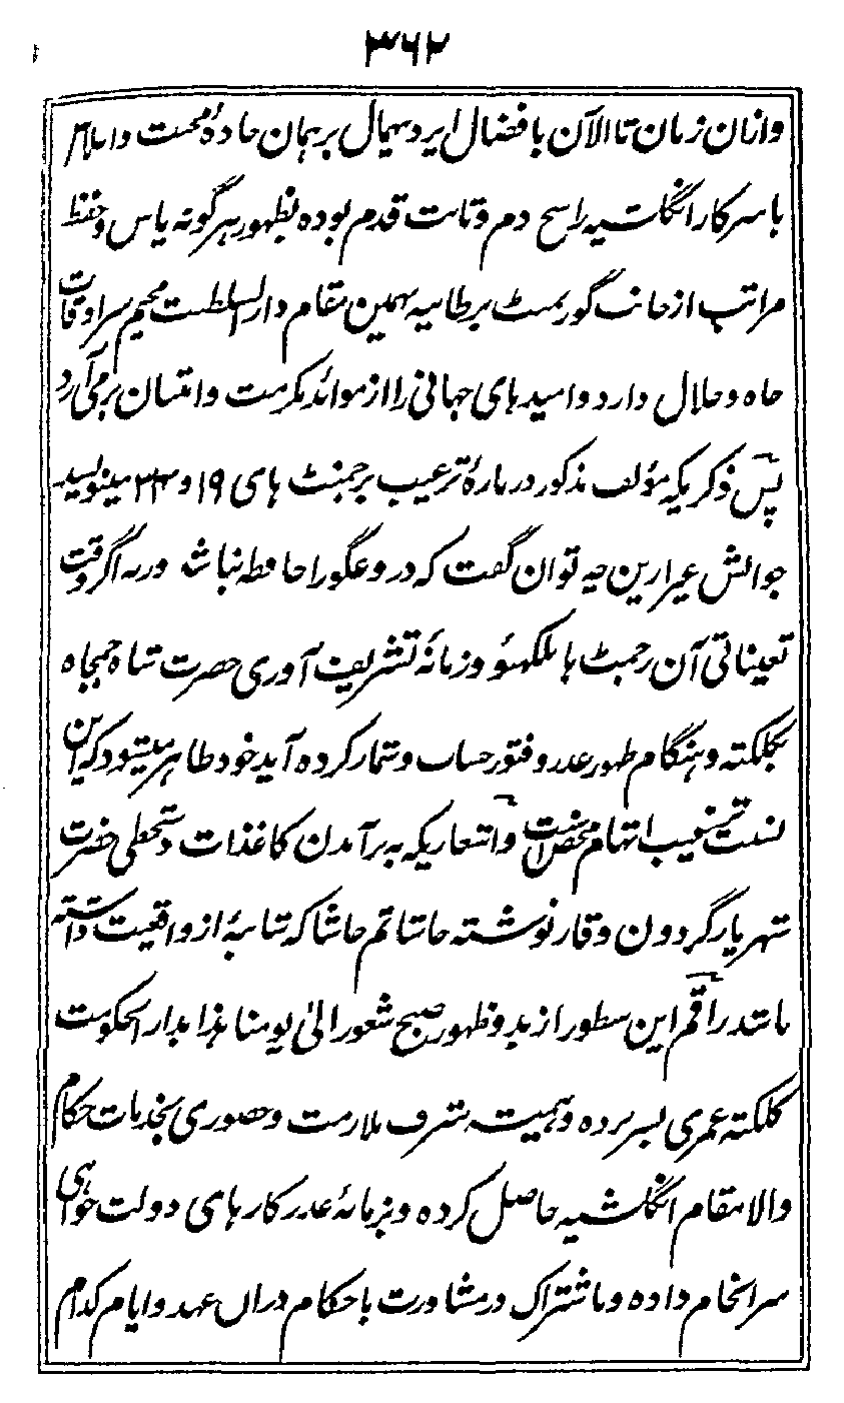 ۳۶۲
وازان زمان تا الآن بافضال ایزد بیمال برہمان جادہٴ محبت دایلام
با سرکار انگلشیہ راسخ دم و ثابت قدم بودہ بظہور ہرگونہ پاس و حفظ
مراتب از جانب گورنمنٹ برطانیہ بہمین مقام دار السلطنت مخیم سرادقات
جاہ و جلال دارد و امیدہای جہانی را از موائد مکرمت و امتنان برمی آرد
پس ذکریکہ مؤلف مذکور دربارۂ ترغیب برجمنٹ ہای ۱۹ و ۳۴ مینویسد
جوابش غیر ازین چہ توان گفت کہ دروغگو را حافظہ نباشد ورنہ اگر وقت
تعیناتی آن رجمنٹ ہا بلکہنؤ و زمانۂ تشریف آوری حضرت شاہ جمجاہ
بکلکتہ و ہنگام ظہور غدر و فتور حساب و شمار کردہ آید خود ظاہر میشود کہ این
نسبت ترغیب اتہام محض است و اشعاریکہ بہ برآمدن کاغذات دستخطی حضرت
شہریار گردون وقار نوشتہ حاشا ثم حاشا کہ شایبۂ از واقعیت داشتہ
باشد راقم این سطور از بدو ظہور صبح شعور الیٰ یومنا ہذا بدار الحکومت
کلکتہ عمری بسر بردہ و ہمیشہ شرف ملازمت و حضوری بخدمات حکام
والا مقام انگلشیہ حاصل کردہ و بزمانۂ غدر کارہای دولت خواہی
سرانجام دادہ و باشتراک در مشاورت با حکام دران عہد و ایام کدام